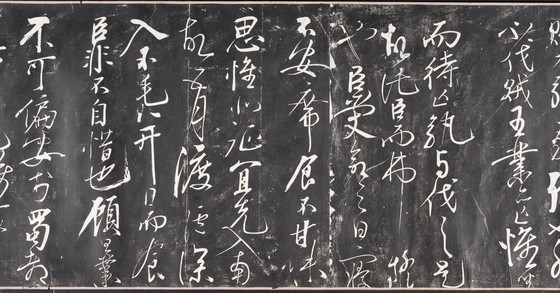 不伐賊王業亦亡惟坐
而待亡孰與伐之是
故託臣而弗疑
也臣受命之日寢
不安席食不甘味
思惟北征宜先入南
故五月渡瀘深
入不毛并日而食
臣非不自惜也顧王業
不可偏安於蜀都